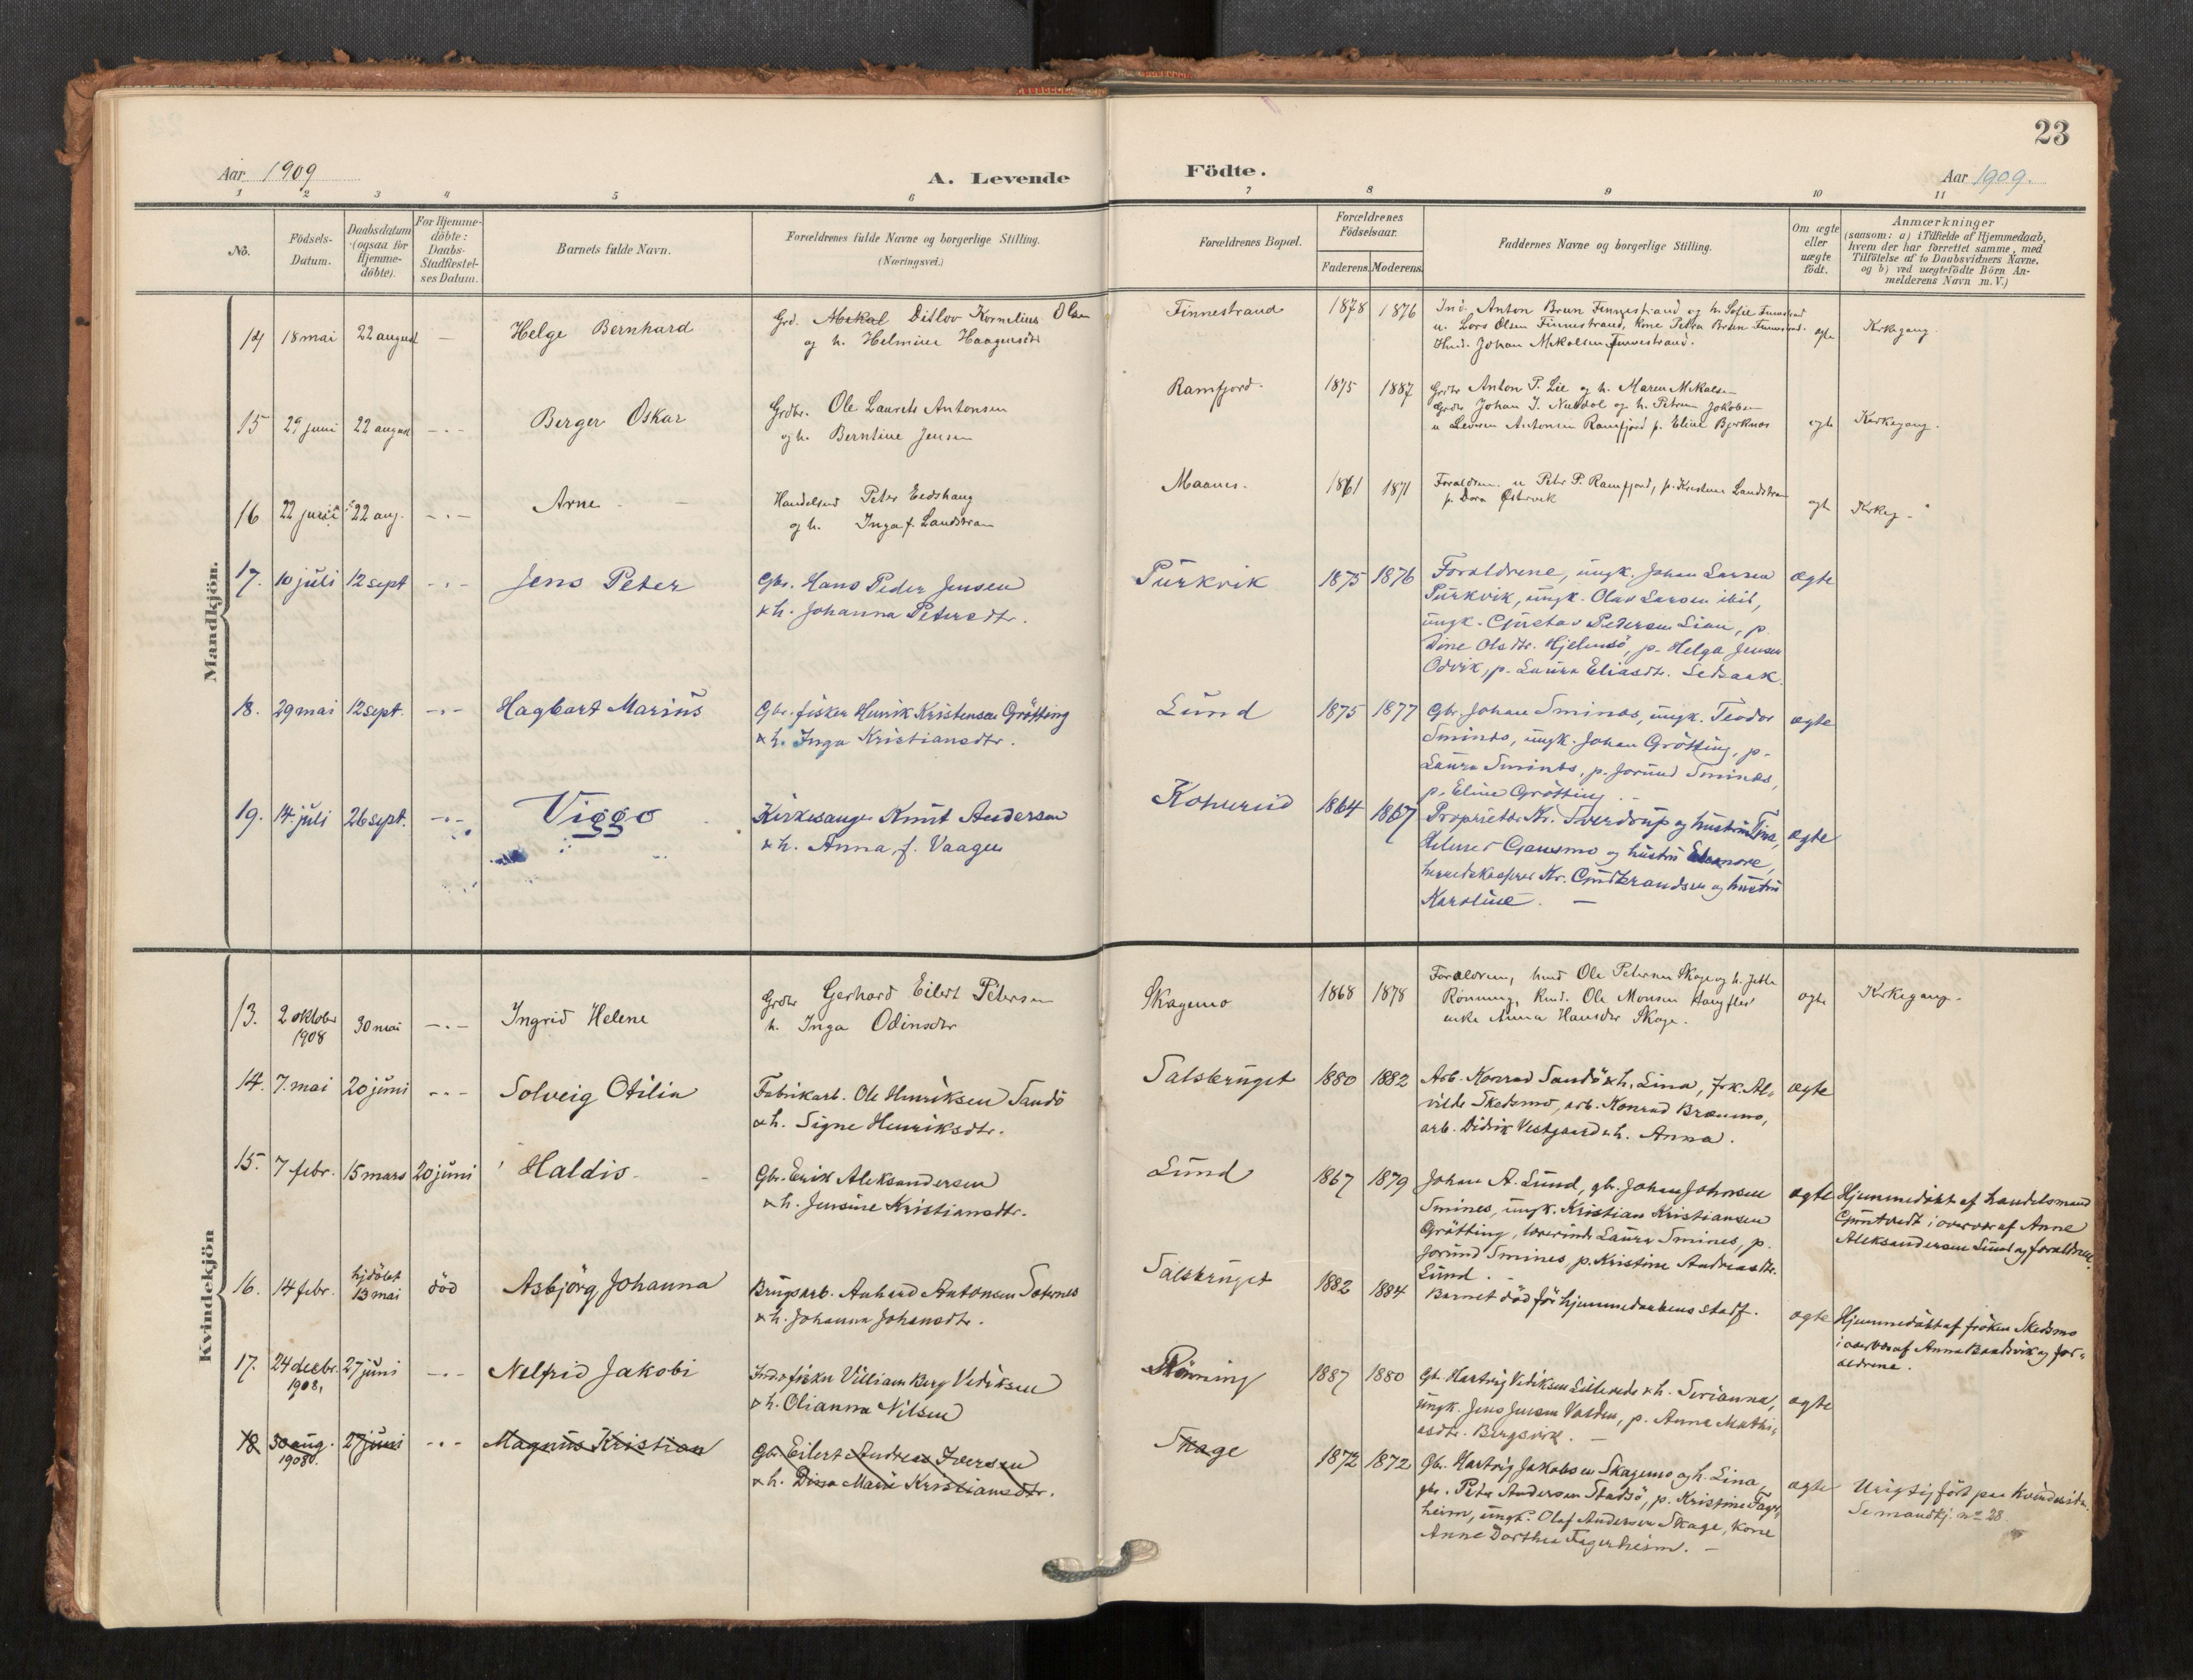 23
Aar 1909
A. Levende
Födte.
Aar 1909.
1 2 3 4 5 6 7 8 9 10 11
No.
Födsels-
Datum.
Daabsdatum
(ogsaa for
Hjemme-
döbte).
For Hjemme-
döbte:
Daabs-
Stadfæstel-
ses Datum.
Barnets fulde Navn.
Forældrenes fulde Navne og borgerlige Stilling.
(Næringsvei.)
Forældrenes Bopæl.
Forældrenes
Födselsaar.
Faderens. Moderens.
Faddernes Navne og borgerlige Stilling.
Om ægte
eller
uægte
födt.
Anmærkninger
(saasom: a) i Tilfælde af Hjemmedaab,
hvem der har forrettet samme, med
Tilföielse af to Daabsvidners Navne.
og b) ved uægtefödte Börn An-
melderens Navn m. V.)
Mandkjön.
14 18 mai 22 august — Helge Bernhard
Grd. Mekal Ditlov Kornelius Olsen
og h. Helmine Haagensdtr
Finnestrand 1878 1876
Ind. Anton Brun Finnestrand og h. Sofie
u. Lars Olsen Finnestrand, kone Petra Brun
Johan Mikalsen Finnestrand.
egte Kirkegang.
15 29 juni 22 august -.- Berger Oskar
Grdbr. Ole Laurets Antonsen
og h. Berntine Jensen
Ramfjord. 1875 1887
Grdbr Anton P. Lie og h. Maren Mikalsen
Grdbr Johan J. og h. Petrine Jakobsen
u Antonsen Ramfjord p. Eline Bjorknes
egte Kirkegang.
16 22 juni 22 aug. -.- Arne
Handelsmd Peter Eedshaug
og h. Inga f. Landstran
Maanes. 1861 1871
Forældrene u Petr P. Ramfjord, p. Kristine Landstran
p. Dora Østervik
egte Kirkeg.
17. 10 juli 12 sept -.- Jens Peter
Gbr. Hans Peder Jensen
& h. Johanna Petersdtr.
Purkvik 1875 1876
Forældrene, ungk. Johan Larsen
Purkvik, ungk. Olav Larsen ibid,
ungk. Gustav Pedersen Lian, p.
Dine Olsdtr. Hjelmsö, p. Helga Jensen
Odvik, p. Laura Eliasdtr. Sedsaak.
ægte
18. 29 mai 12 sept. -.- Hagbart Marius
Gbr. fisker Henrik Kristensen Grötting
& h. Inga Kristiansdtr.
Lund 1875 1877
Gbr. Johan Sminds, ungk. Teodor
Sminds, ungk. Johan Grötting, p.
Laura Sminds, p. Jorund Sminds,
p. Eline Grötting
ægte
19. 14. juli 26 sept. -.- Viggo
Kirkesanger Knut Anderson
& h. Anna, f. Vaagen
1864 1867
Proprietær Kr. Sverdrup og hustru Tina,
Helmer Gansmo og hustru Eleanore,
herredskasserer Kr. Gudbrandsen og hustru
Karoline. —
ægte
Kvindekjön
13. 2 oktober 30 mai -.- Ingrid Helene
1908
Grdbr Gerhard Eilert Petersen
h. Inga Odinsdtr
Skagemo 1868 1878
Forældrene, hmd Ole Petersen Skage og h. Jette
Rönning, Kmd. Ole Monsen
enke Anna Hansdtr Skage.
egte Kirkegang.
14. 7. mai 20 juni -.- Solveig Otilia
Fabrikarb. Ole Henriksen Sandö
& h. Signe Henriksdtr.
Salsbruget 1880 1882
Arb. Konrad Sandö & h. Lina, frk. Al-
vilde Skedsmo, arb. Konrad Brænmo,
arb. Didrik Vestgaard & h. Anna.
ægte
15. 7 febr. 15 mars 20 juni Haldis
Gbr. Erik Aleksandersen
& h. Jensine Kristiansdtr.
Lund 1867 1879
Johan A. Lund, gbr. Johan Johnsen
Smines, ungk. Kristian Kristiansen
Grötting, Laura Smines, p.
Jorund Smines, p. Kristine Andreasdtr.
Lund.
ægte
Hjemmedöbt af handelsmand
i overvær af Anne
Aleksandersen Lund og forældrene.
16. 14 febr. hjdöbt död Asbjörg Johanna
13 mai
Brugsarb. Anhard Antonsen Saternes
& h. Johanna Johansdtr.
Salsbruget 1882 1884
Barnet död för hjemmedaabens stadf.
ægte
Hjemmedöbt af fröken Skedsmo
i overvær af Anna Baadsvik og for-
ældrene.
17. 24 decbr. 27 juni -.- Nelfrid Jakobi
1908,
Ind. fisker Villiam Berg Vediksen
& h. Olianna Nilsen
Rönning 1887 1880
Gb. Hartvig Vediksen Lillevede & h. Serianna,
ungk. Jens Jensen Valden, p. Anna Mathi-
asdtr. Bergsvik. —
ægte
18 30 aug. 27 juni -.- Magnus Kristian
1908.
Gbr. Eilert Andreas Iversen
& h. Dina Marie Kristiansdtr.
Skage 1872 1872
Gbr. Hartvig Jakobsen Skagemo og h. Lina,
gbr. Peter Andersen Stadsö, p. Kristine Fager-
heim, ungk. Olaf Andersen Skage, kone
Anne Dorthea Fagerheim. —
ægte
Urigtig fört paa kvindesiden.
Se mandkj. no 28.